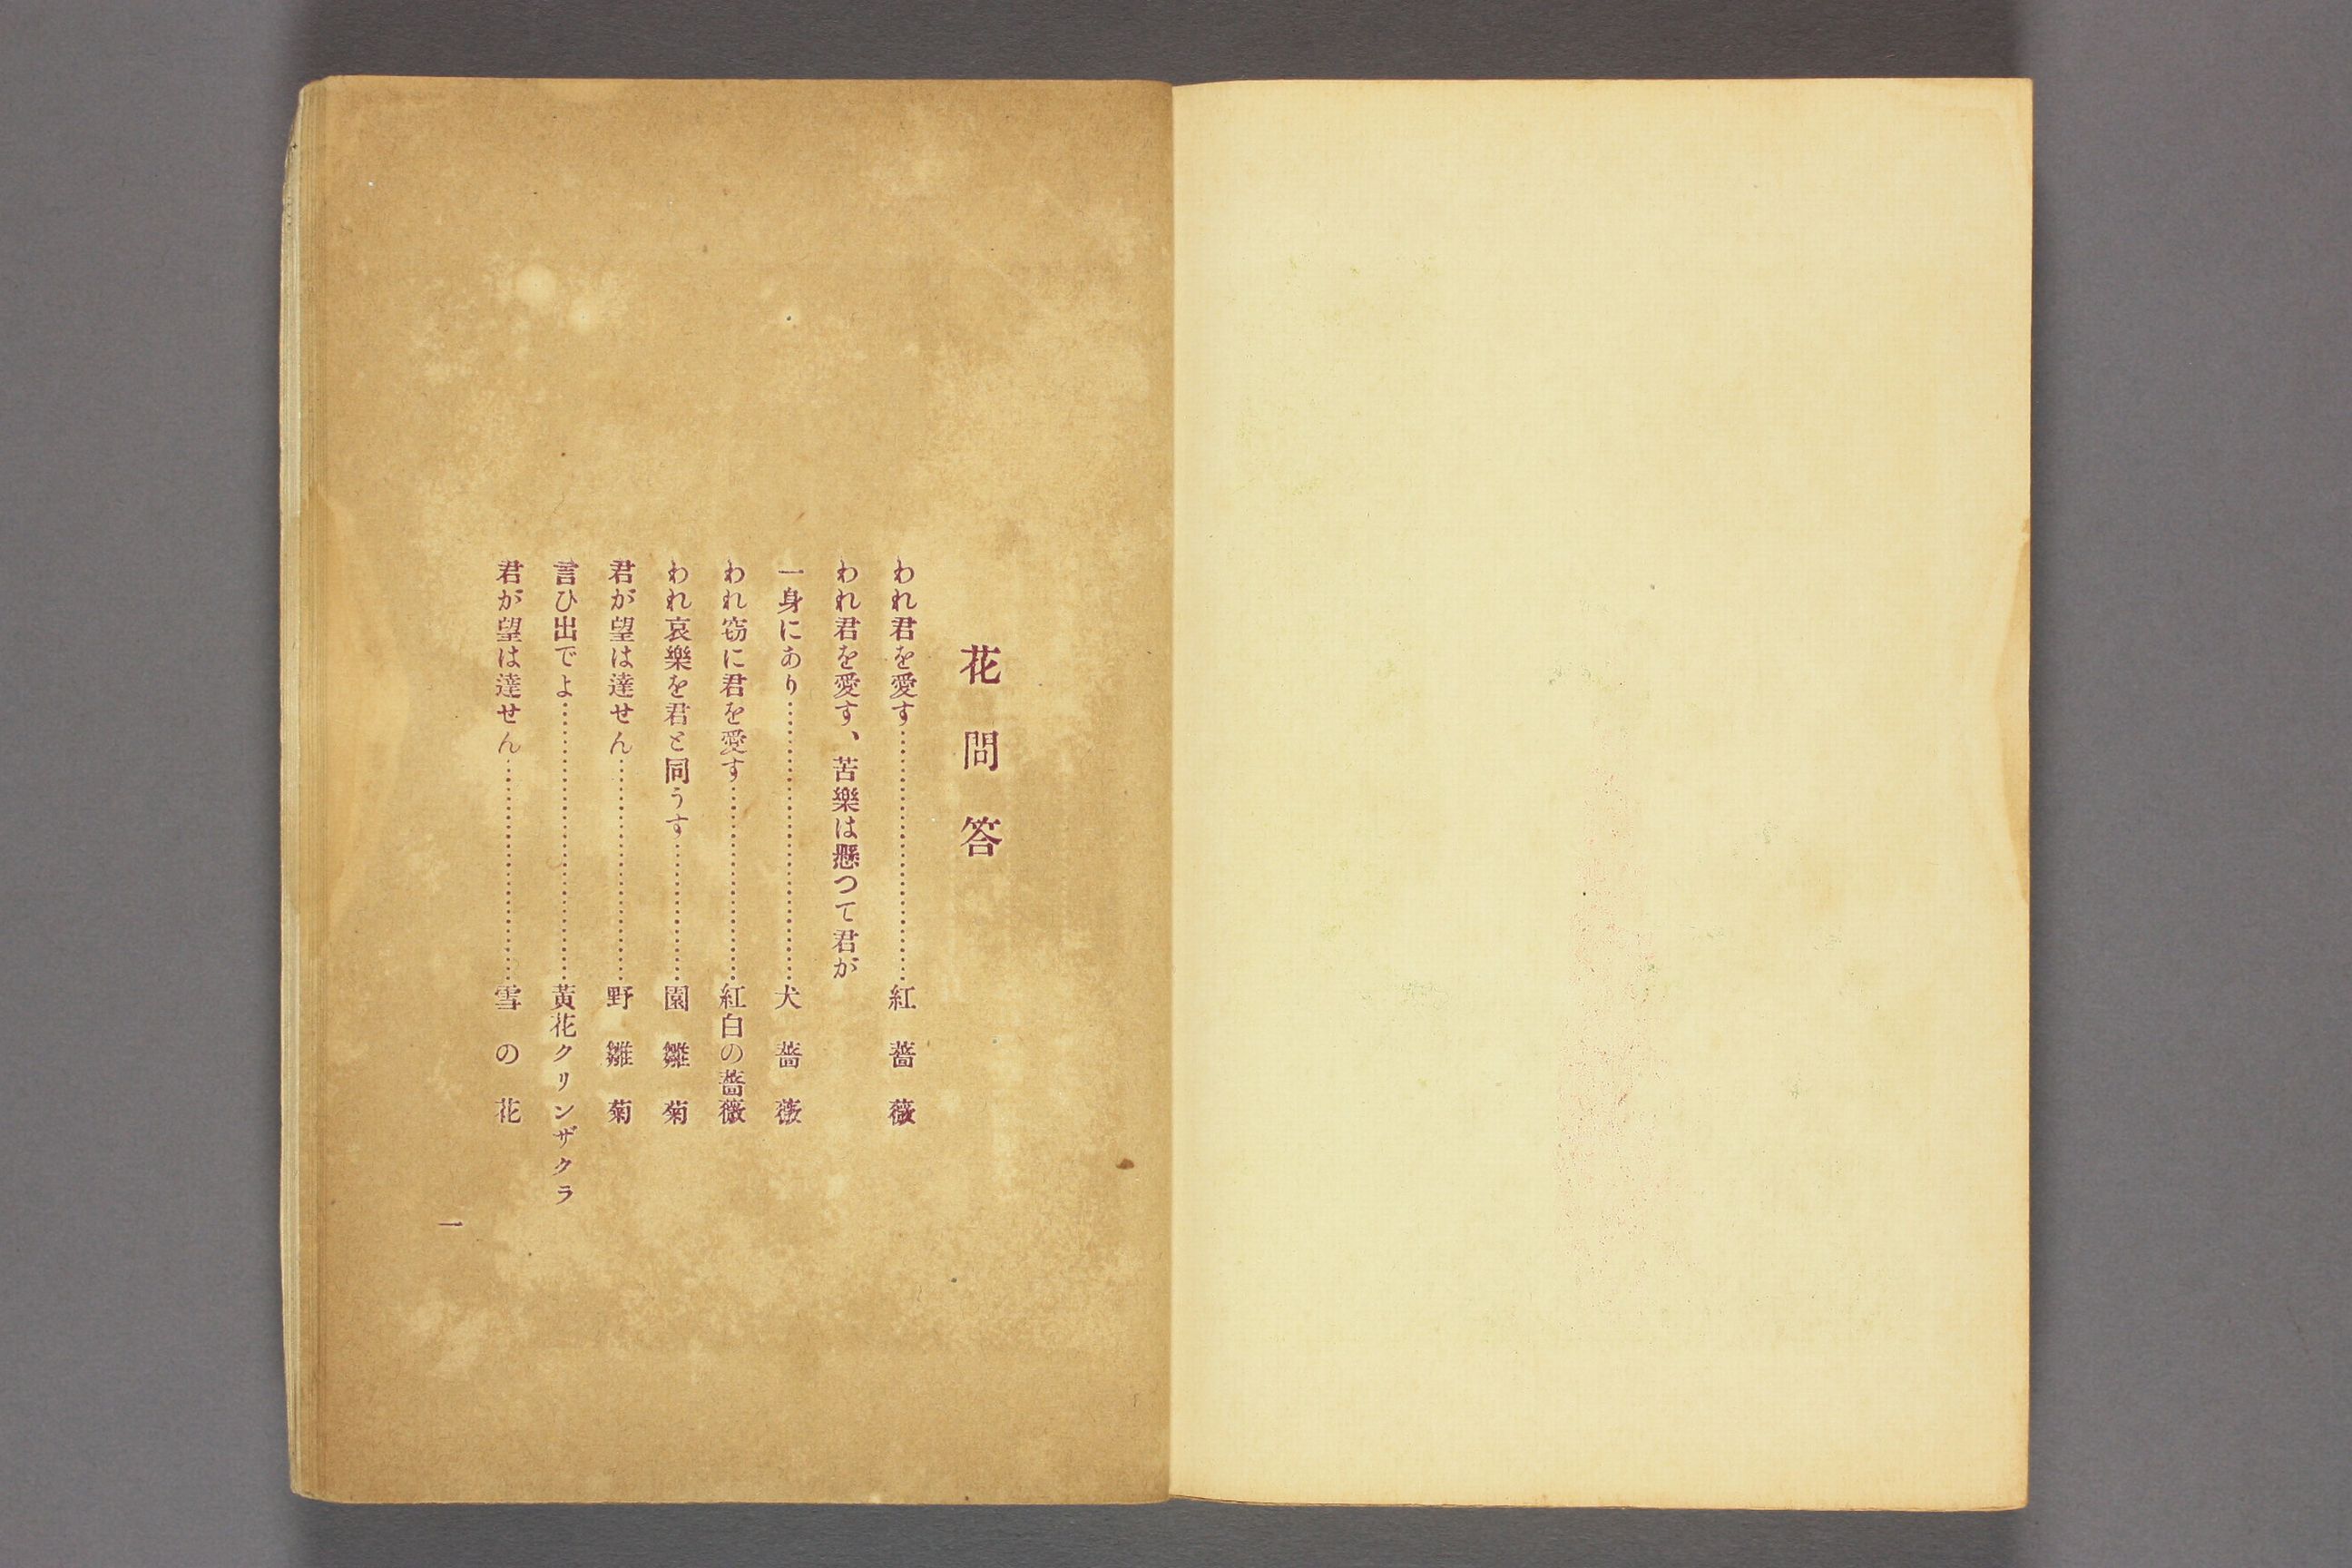 花問答
われ君を愛す……………………紅薔薇
われ君を愛す、苦樂は懸つて君が
一身にあり……………………犬薔薇
われ窃に君を愛す………………紅白の薔薇
われ哀樂を君と同うす……………園雛菊
君が望は達せん…………………野雛菊
言ひ出でよ……………………黃花クリンザクラ
君が望は達せん…………………雪の花
一